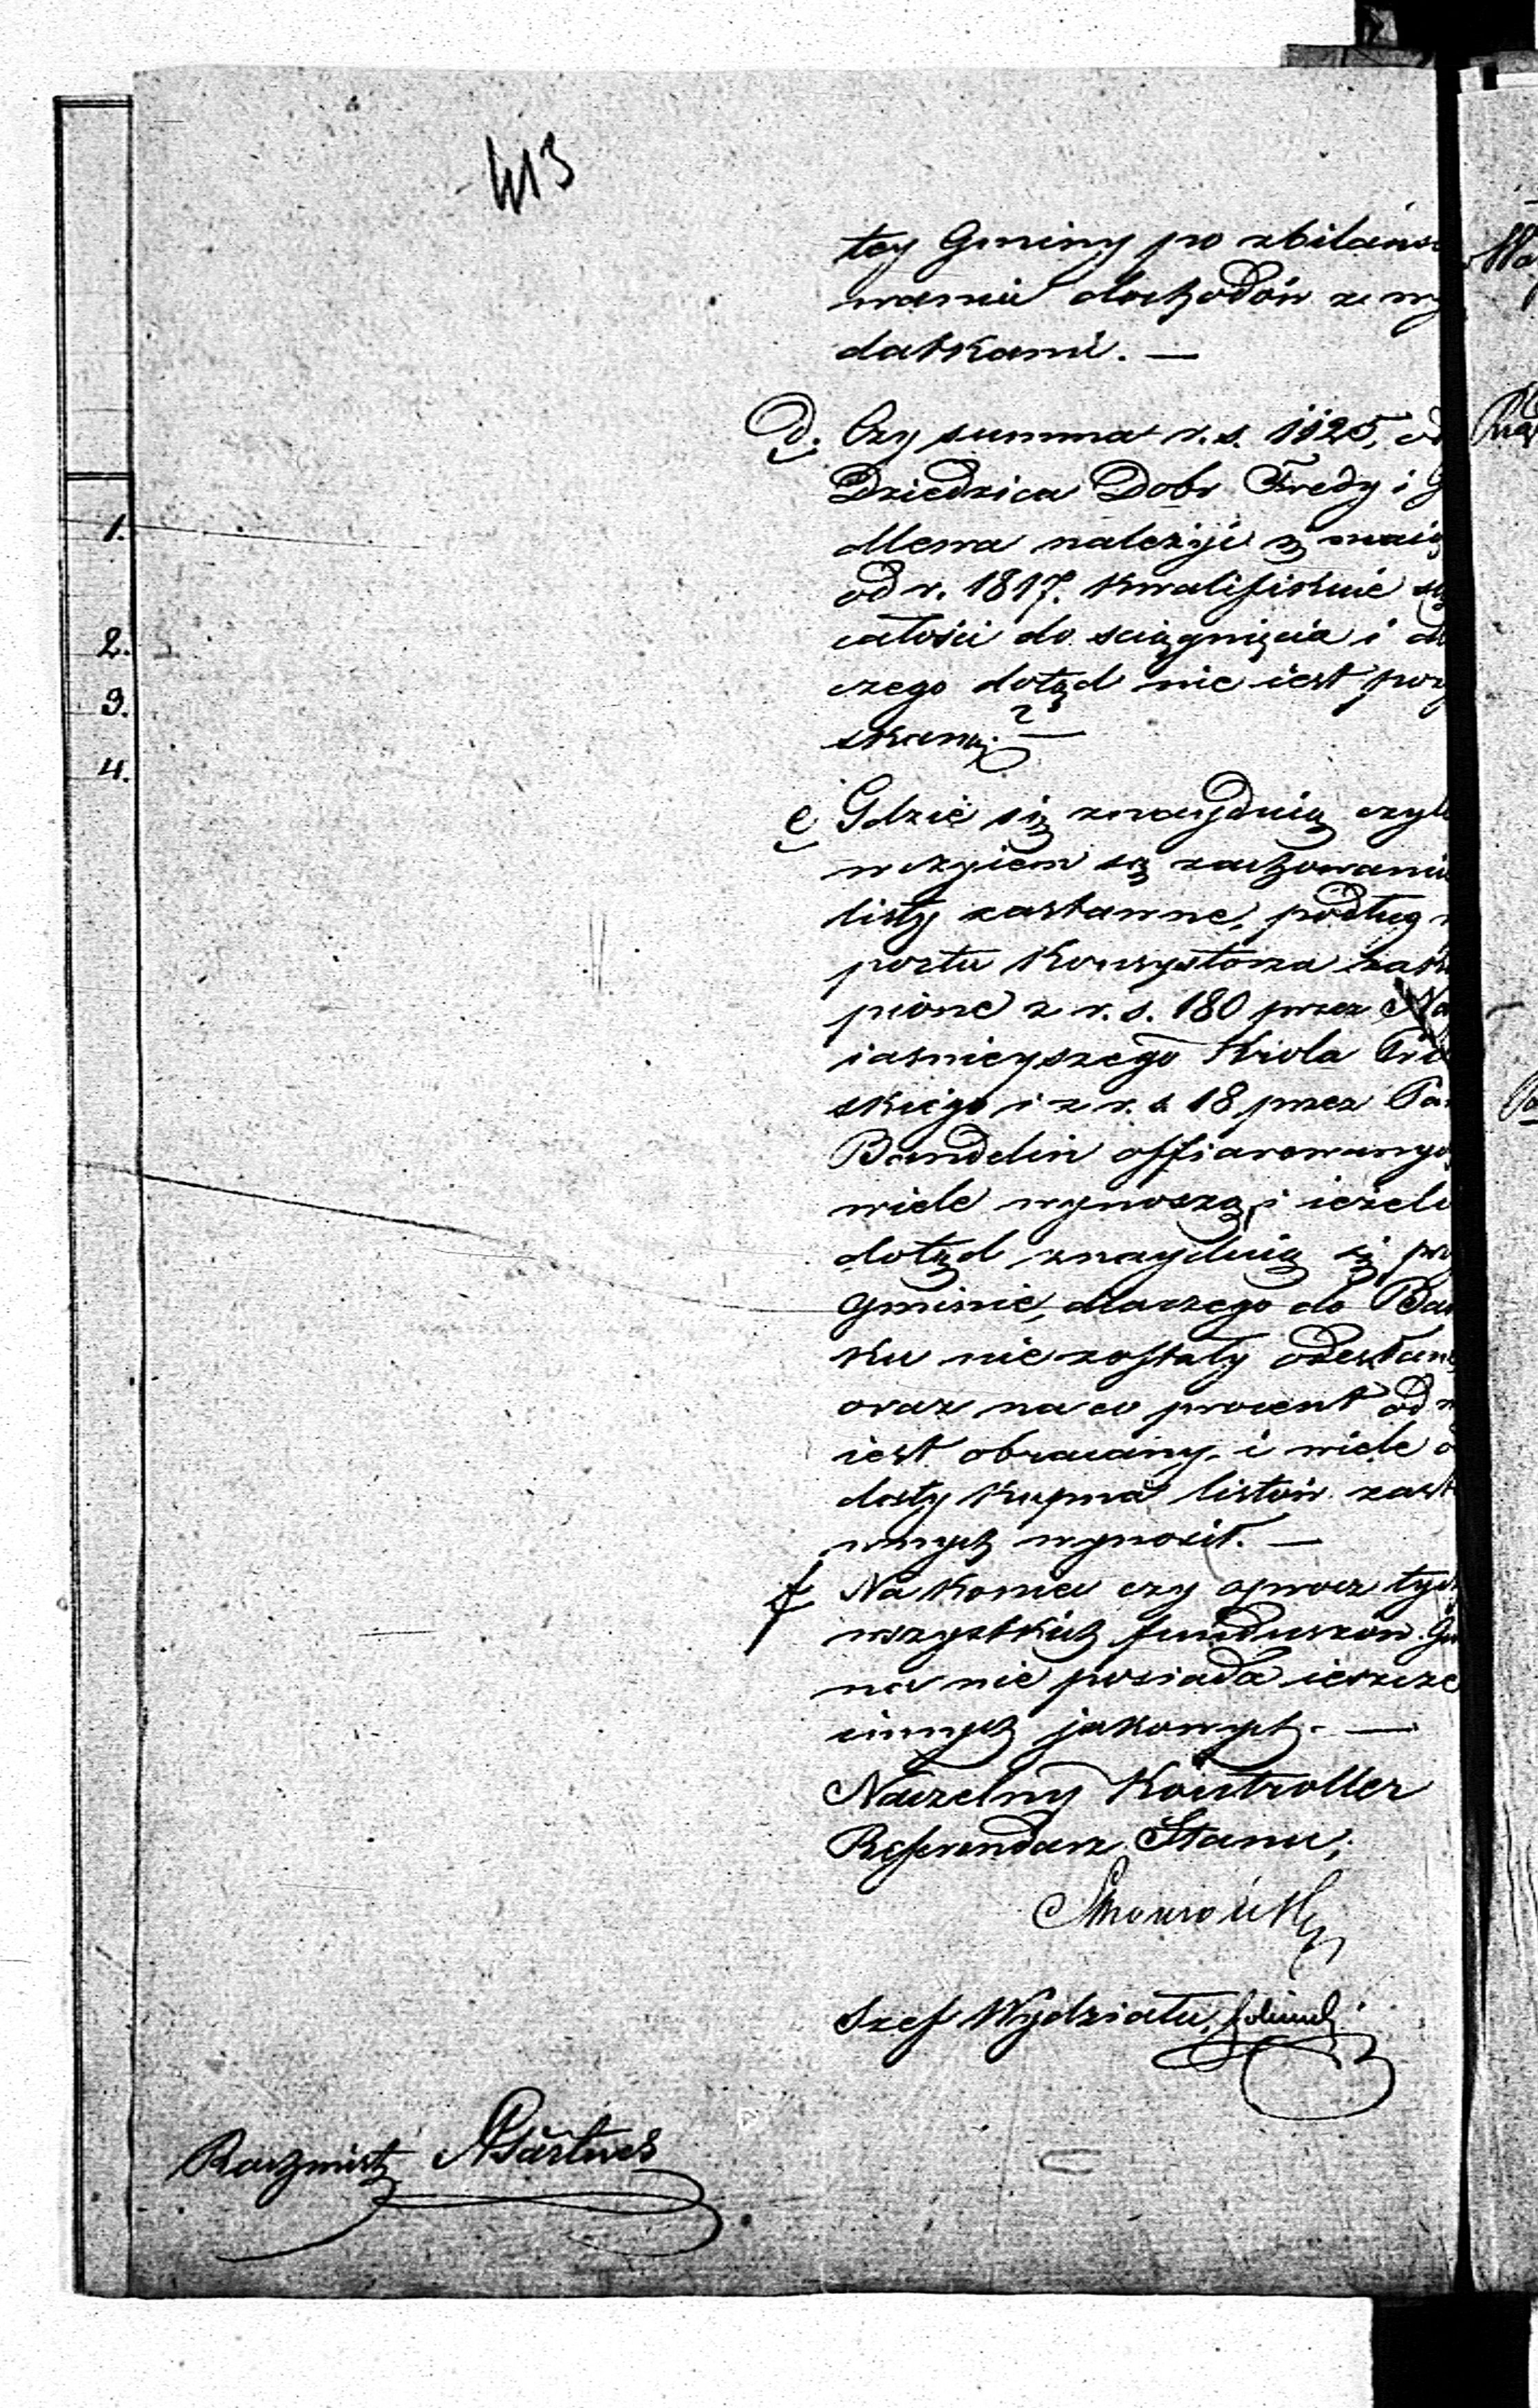 413
tey Gminy po zbilanso
waniu dochodów z wy
datkami. —
D. Czy summa r. s. 1125, od
Dziedzica Dobr Fredy i
Mlewa należyć się maią
od r. 1817. kwalifikuie się
całości do sciągnięcia i dla
czego dotąd nie iest pozy
skaną? —
e Gdzie się znayduią czyli
w czyiem są zachowaniu
listy zastawne, podług
portu Konsystorza zaku
pione z r. s. 180 przez Na
iaśnieyszego Króla Pru
skiego i z r. s. 18 przez Pa
Bandelin offiarowanych
wiele wynoszą, i ieżeli
dotąd znayduią się przy
Gminie, dlaczego do Ban
ku nie zostały odesłane
oraz na co procent od
iest obracany, i wiele
daty kupna listów zast
wnych wynosił. —
f Nakoniec czy oprocz tych
wszystkich funduszów Gmi
na nie posiada ieszcze
innych jakowych. —
Naczelny Kontroller
Referendarz Stanu,
Szef Wydziału,
Rachmistrz
1.
2.
3.
4.